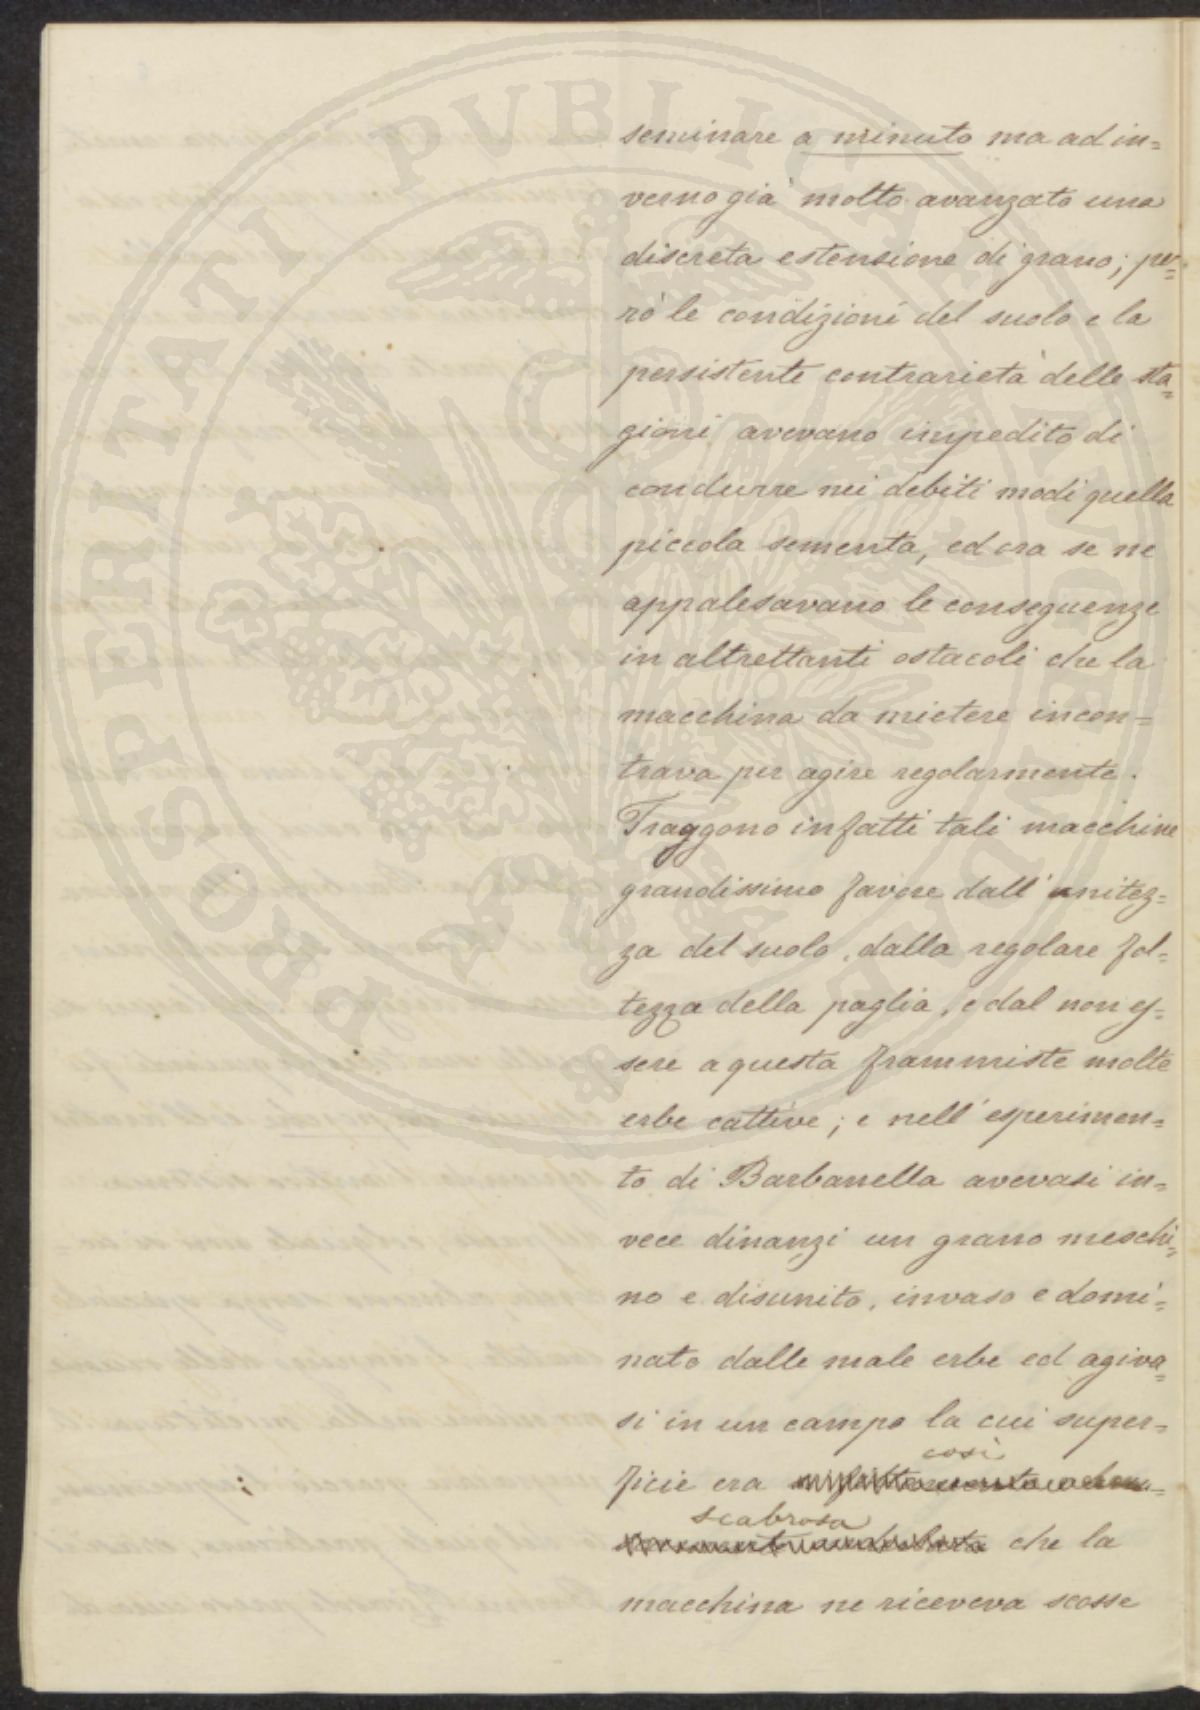 PROSPERITATI PVBLICAE AVGENDAE
seminare a minuto ma ad in=
verno già molto avanzato una
discreta estensione di grano; pe=
rò le condizioni del suolo e la
persistente contrarietà delle sta=
gioni avevano impedito di
condurre nei debiti modi quella
piccola sementa, ed ora se ne
appalesavano le conseguenze
in altrettanti ostacoli che la
macchina da mietere incon=
trava per agire regolarmente.
Traggono infatti tali macchine
grandissimo favore dall'unitez=
za del suolo, dalla regolare fol=
tezza della paglia, e dal non es=
sere a questa frammiste molte
erbe cattive; e nell'esperimen=
to di Barbanella avevasi in=
vece dinanzi un grano meschi=
no e disunito, invaso e domi=
nato dalle male erbe ed agiva=
si in un campo la cui super=
così
ficie era
scabrosa
che la
macchina ne riceveva scosse